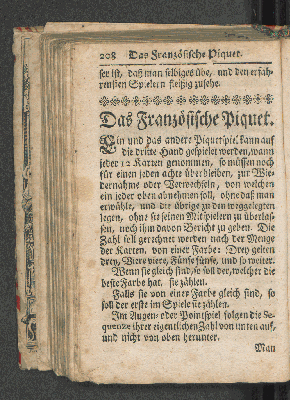 208 Das Französische Piquet.
ser ist, daß man selbiges übe, und den erfah-
rensten Spielern fleißig zusehe.
Das Französische Piquet.
Ein und das andere Piquetspiel kann auf
die dritte Hand gespielet werden, wann
jeder 12 Karten genommen, so müssen noch
für einen jeden achte überbleiben, zur Wie-
dernahme oder Verwechseln, von welchen
ein jeder eben abnehmen soll, ohne daß man
erwähle, und die übrige zu den weggelegten
legen, ohne sie seinen Mitspielern zu überlas-
sen, noch ihm davon Bericht zu geben. Die
Zahl soll gerechnet werden nach der Menge
der Karten, von einer Farbe: Drey gelten
drey, Viere viere, Fünfe fünfe, und so weiter.
Wenn sie gleich sind, so soll der, welcher die
beste Farbe hat, sie zählen.
Falls sie von einer Farbe gleich sind, so
soll der erste im Spiele sie zählen.
Am Augen- oder Pointspiel folgen die Se-
quenze ihrer eigentlichen Zahl von unten auf,
und nicht von oben herunter.
Man